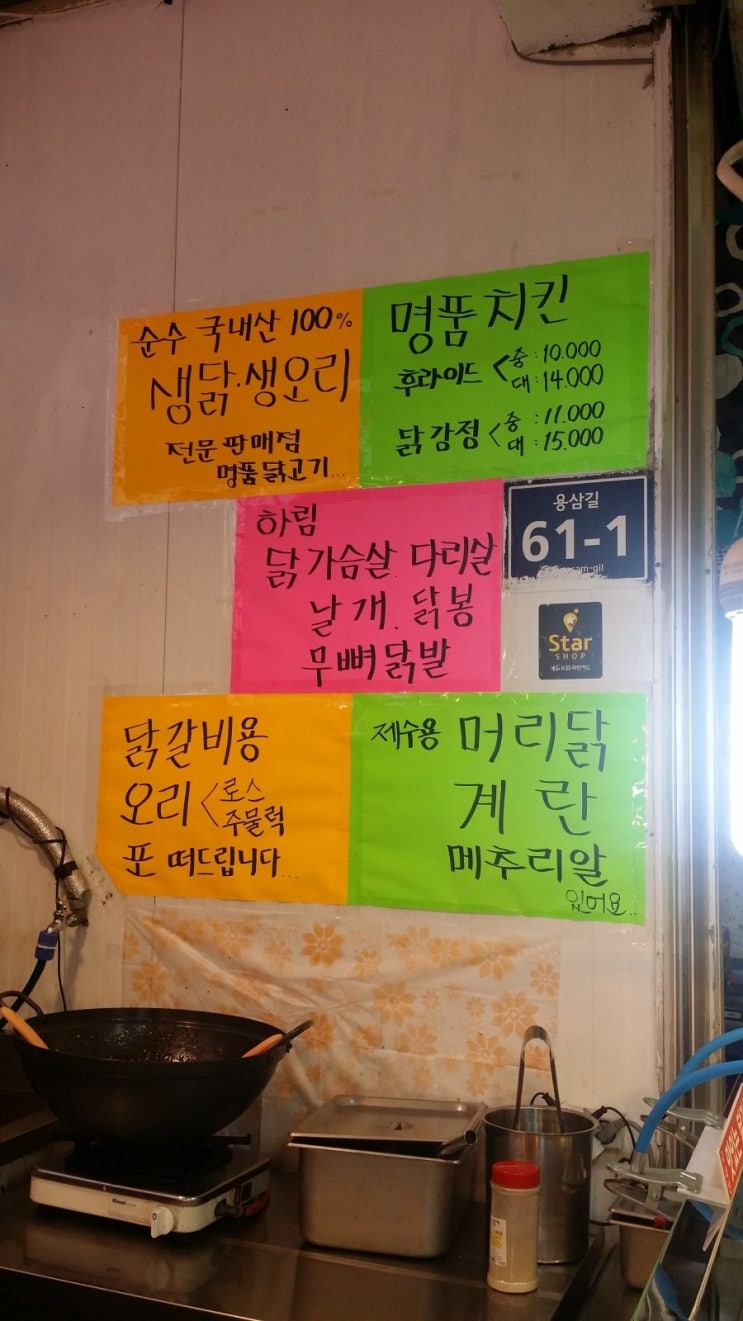 순수 국내산 100%
생닭·생오리
전문 판매점
명품 닭고기...
명품치킨
후라이드 < 중 : 10.000
대 : 14.000
닭강정 < 중 : 11.000
대 : 15.000
하림
닭가슴살. 다리살
날개. 닭봉
무뼈닭발
용삼길
61-1
Star
SHOP
KB국민카드
닭갈비용
오리 < 로스
주물럭
포 떠드립니다...
제수용 머리닭
계란
메추리알
있어요..